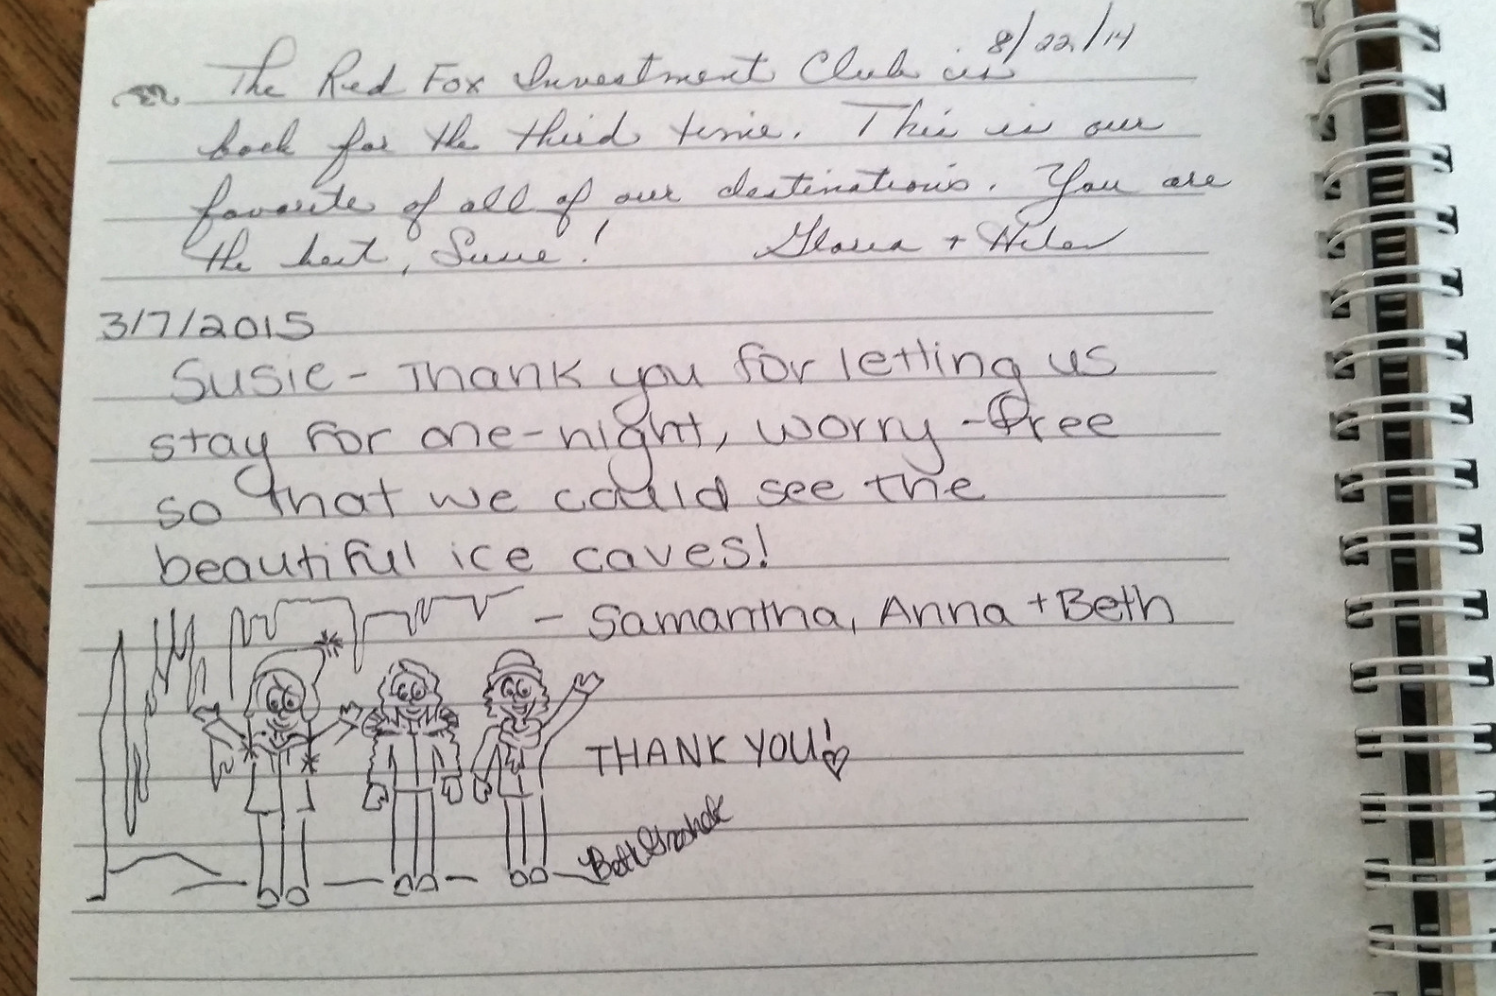 8/22/14
The Red Fox Investment Club is
back for the third time. This is our
favorite of all of our destinations. You are
the best, Susie! Gloria + Helen
3/7/2015
Susie - Thank you for letting us
stay for one-night, worry-free
so that we could see the
beautiful ice caves!
- Samantha, Anna + Beth
THANK YOU!
Beth